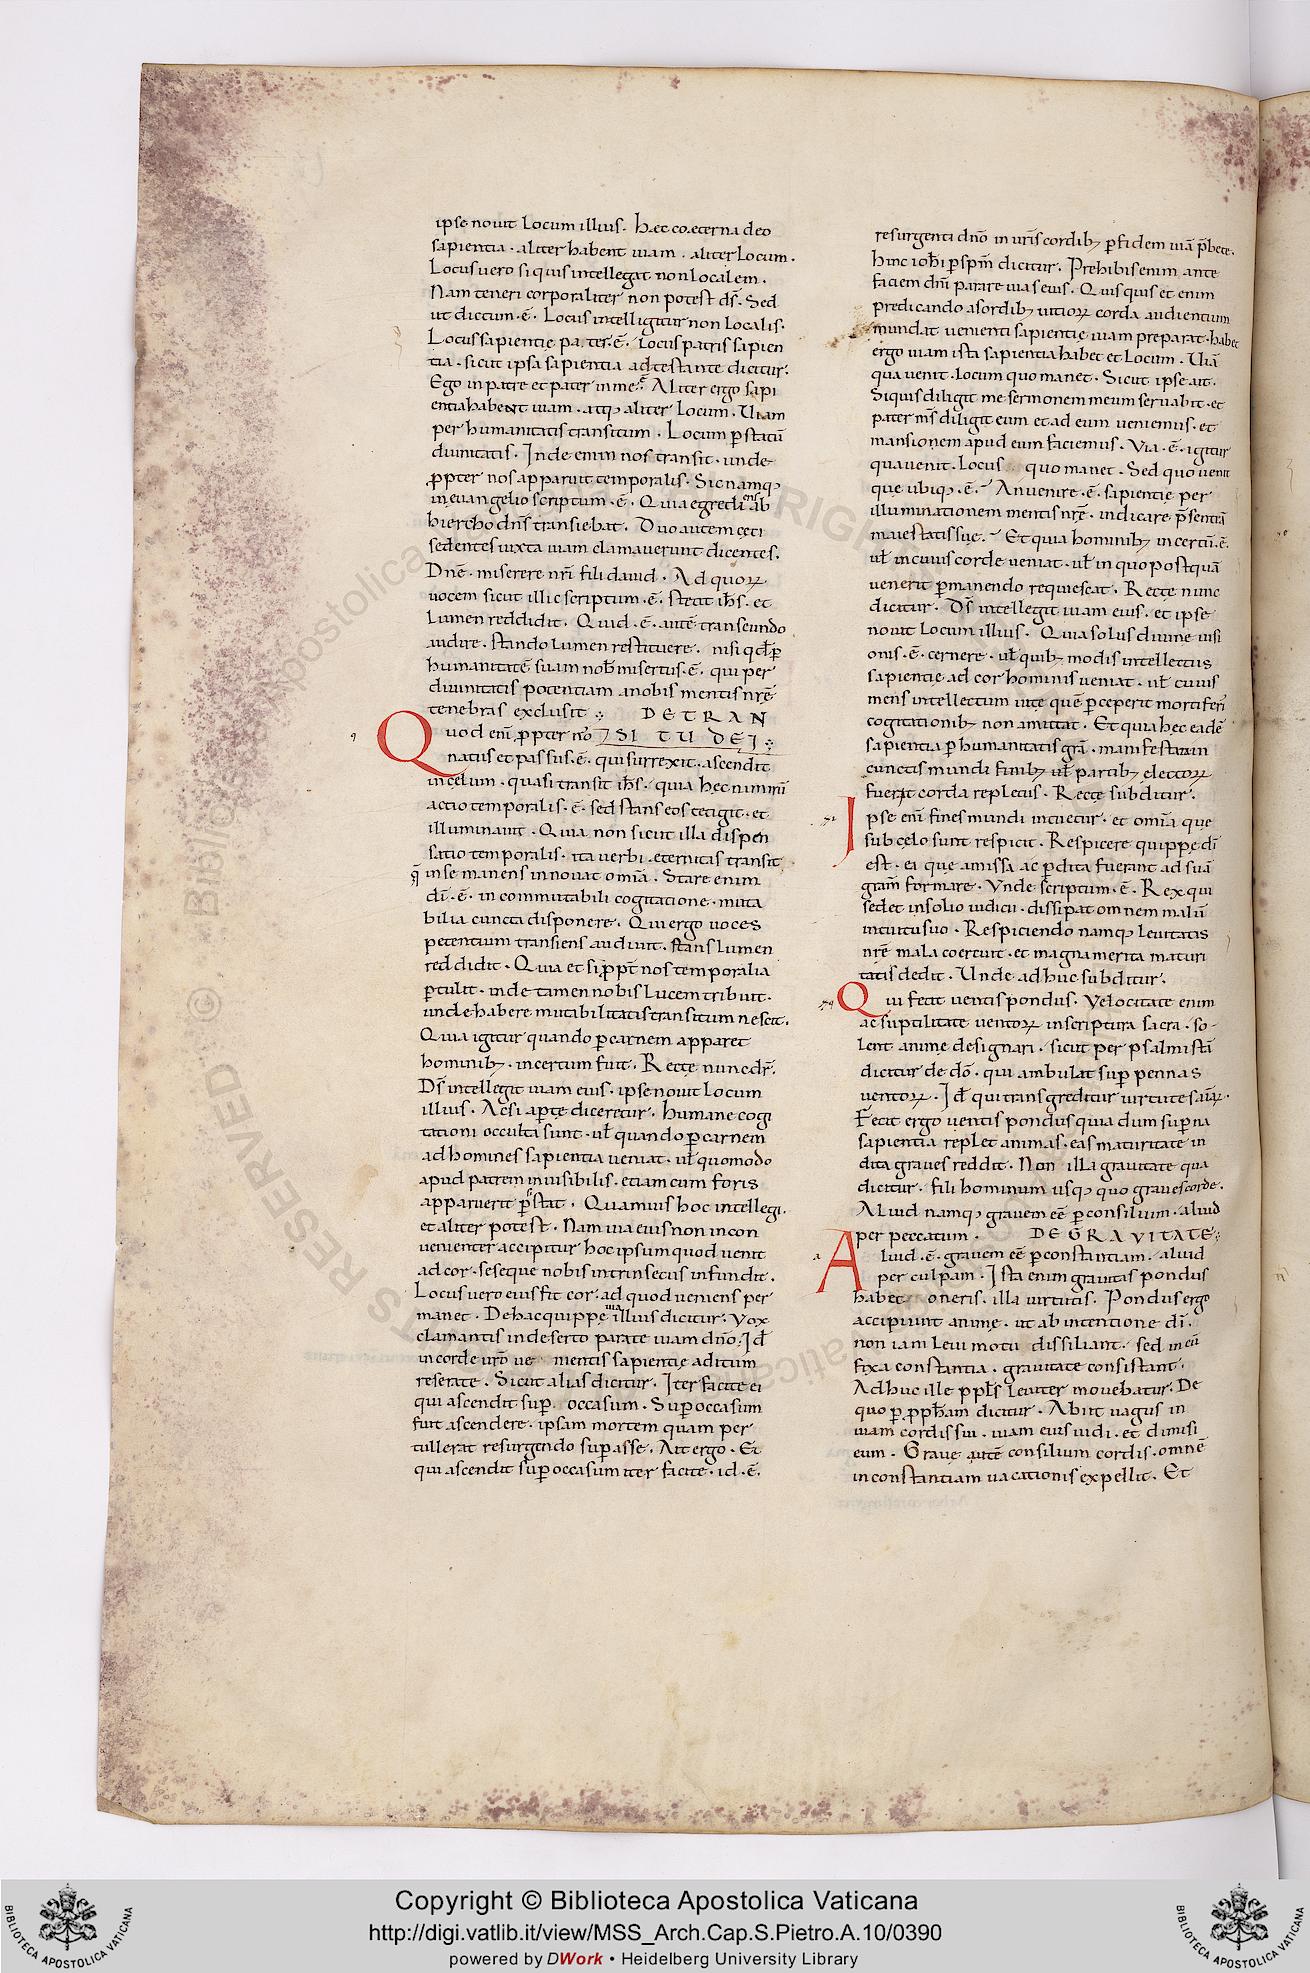 ipse nouit locum illius. Hec coeterna deo
sapientia. aliter habent uiam. aliter locum.
Locus uero si quis intellegat non localem.
Nam teneri corporaliter non potest d̄s. Sed
ut dictum .ē. Locus intelligitur non localis.
Locus sapientie pater .ē. locus patris sapien
tia. sicut ipsa sapientia adtestante dicitur.
Ego in patre et pater in me .ē. Aliter ergo sapi
entia habent uiam. atq; aliter locum. Uiam
per humanitatis transitum. Locum p̱ statū
diuinitatis. Inde enim nos transit. unde
ꝓpter nos apparuit temporalis. Sic namq;
in euangelio scriptum .ē. Quia egredientib; ab
hiericho dn̄s transiebat. Duo autem ceci
sedentes iuxta uiam clamauerunt dicentes.
Dn̄e. miserere nr̄i fili dauid. Ad quoꝝ
uocem sicut illic scriptum .ē. stetit ih̄s. et
lumen reddidit. Quid .ē. autē transeundo
audire. stando lumen restituere. nisi qđ p̱
humanitatē suam nob̄ misertus .ē. qui per
diuinitatis potentiam a nobis mentis nr̄ę
tenebras exclusit DE TRAN
Quod eni̅ ꝓpter nos SITU DEI
natus et passus .ē. qui surrexit. ascendit
in celum. quasi transit ih̄s. quia hec nimirū
actio temporalis .ē. sed stans eos tetigit. et
illuminauit. Quia non sicut illa dispen
satio temporalis. ita uerbi eternitas transit
q̄ in se manens innouat omīa. Stare enim
dī .ē. incommutabili cogitatione. muta
bilia cuncta disponere. Qui ergo uoces
petentium transiens audiuit. stans lumen
reddidit. Quia et si ꝓpt̄ nos temporalia
p̱tulit. inde tamen nobis lucem tribuit.
unde habere mutabilitatis transitum nescit.
Quia igitur quando p̱ carnem apparet
hominib; incertum fuit. Recte nunc dr̄.
Ds̄ intellegit uiam eius. ipse nouit locum
illius. Ac si ap̱te diceretur. humane cogi
tationi occulta sunt. ul̄ quando p̱ carnem
ad homines sapientia ueniat. ul̄ quomodo
apud patrem inuisibilis. etiam cum foris
apparuerit p̱stat. Quamuis hoc intellegi.
et aliter potest. Nam uia eius non incon
uenienter accipitur hoc ipsum quod uenit
ad cor. seseque nobis intrinsecus infundit.
Locus uero eius fit cor. ad quod ueniens per
manet. De hac quippe uia illius dicitur. Vox
clamantis in deserto parate uiam dn̄o. Iđ
in corde ur̄o uenientis sapientie aditum
reserate. Sicut alias dicitur. Iter facite ei
qui ascendit sup̱ occasum. Sup̱ occasum
fuit ascendere. ipsam mortem quam per
tullerat resurgendo sup̱asse. Ait ergo. Ei
qui ascendit sup̱ occasum iter facite. id .ē.
resurgenti dn̄o in ur̄is cordib; p̱ fidem uiā p̄bete.
hinc ioh̄i p̱ sp̄m dicitur. Preibis enim ante
faciem dn̄i parare uias eius. Quisquis et enim
predicando a sordib; uitioꝝ corda audientium
mundat uenienti sapientie uiam preparat. habet
ergo uiam ista sapientia habet et locum. Uiā
qua uenit. locum quo manet. Sicut ipse ait.
Si quis diligit me sermonem meum seruabit. et
pater ms̄ diligit eum et ad eum ueniemus. et
mansionem apud eum faciemus. Via .ē. igitur
qua uenit. Locus quo manet. Sed quo uenit
que ubiq; .ē. An uenire .ē. sapientie per
illuminationem mentis nr̄ę. indicare p̄sentiā
maiestatis suę. Et quia hominib; incertū .ē.
ul̄ in cuius corde ueniat. ul̄ in quo postquā
uenerit p̱manendo requiescat. Recte nunc
dicitur. Ds̄ intellegit uiam eius. et ipse
nouit locum illius. Quia solus diuine uisi
onis .ē. cernere. ul̄ quib; modis intellectus
sapientie ad cor hominis ueniat. ul̄ cuius
mens intellectum uitę quē p̱ceperit mortiferi
cogitationib; non amittat. Et quia hec eadē
sapientia p̱ humanitatis grā. manifestatam
cunctis mundi finib; ul̄ partib; electoꝝ
fuerat corda repletus. Recte subditur.
Ipse eni̅ fines mundi intuetur. et omīa que
sub celo sunt respicit. Respicere quippe dī
est. ei que amissa ac p̱dita fuerant ad suā
grām formare. Vnde scriptum .ē. Rex qui
sedet in solio iudicii. dissipat omnem malū
intuitu suo. Respiciendo namq; leuitatis
nr̄ę mala coercuit. et magna merita maturi
tatis dedit. Unde adhuc subditur.
Qui fecit uentis pondus. Velocitate enim
ac suptilitate uentoꝝ in scriptura sacra. so-
lent anime designari. sicut per psalmistā
dicitur de dō. qui ambulat sup̱ pennas
uentoꝝ. Iđ qui transgreditur uirtutes aīaꝝ.
Fecit ergo uentis pondus quia dum sup̱na
sapientia replet animas. eas maturitate in
dita graues reddit. Non illa grauitate qua
dicitur. fili hominum usq; quo graues corde.
Aliud namq; grauem eē p̱ consilium. aliud
per peccatum. DE GRAVITATE
Aliud .ē. grauem eē p̱ constantiam. aliud
per culpam. Ista enim grauitas pondus
habet oneris. illa uirtutis. Pondus ergo
accipiunt animę. ut ab intentione dī.
non iam leui motu dissiliant. sed in eū
fixa constantia. grauitate consistant.
Adhuc ille ppl̄s leuiter mouebatur. De
quo p̱ ꝓph̄am dicitur. Abiit uagus in
uiam cordis sui. uiam eius uidi. et dimisi
eum. Graue autē consilium cordis. omnē
inconstantiam uacationis expellit. Et
Copyright © Biblioteca Apostolica Vaticana
http://digi.vatlib.it/view/MSS_Arch.Cap.S.Pietro.A.10/0390
powered by DWork • Heidelberg University Library
BIBLIOTECA APOSTOLICA VATICANA
BIBLIOTECA APOSTOLICA VATICANA